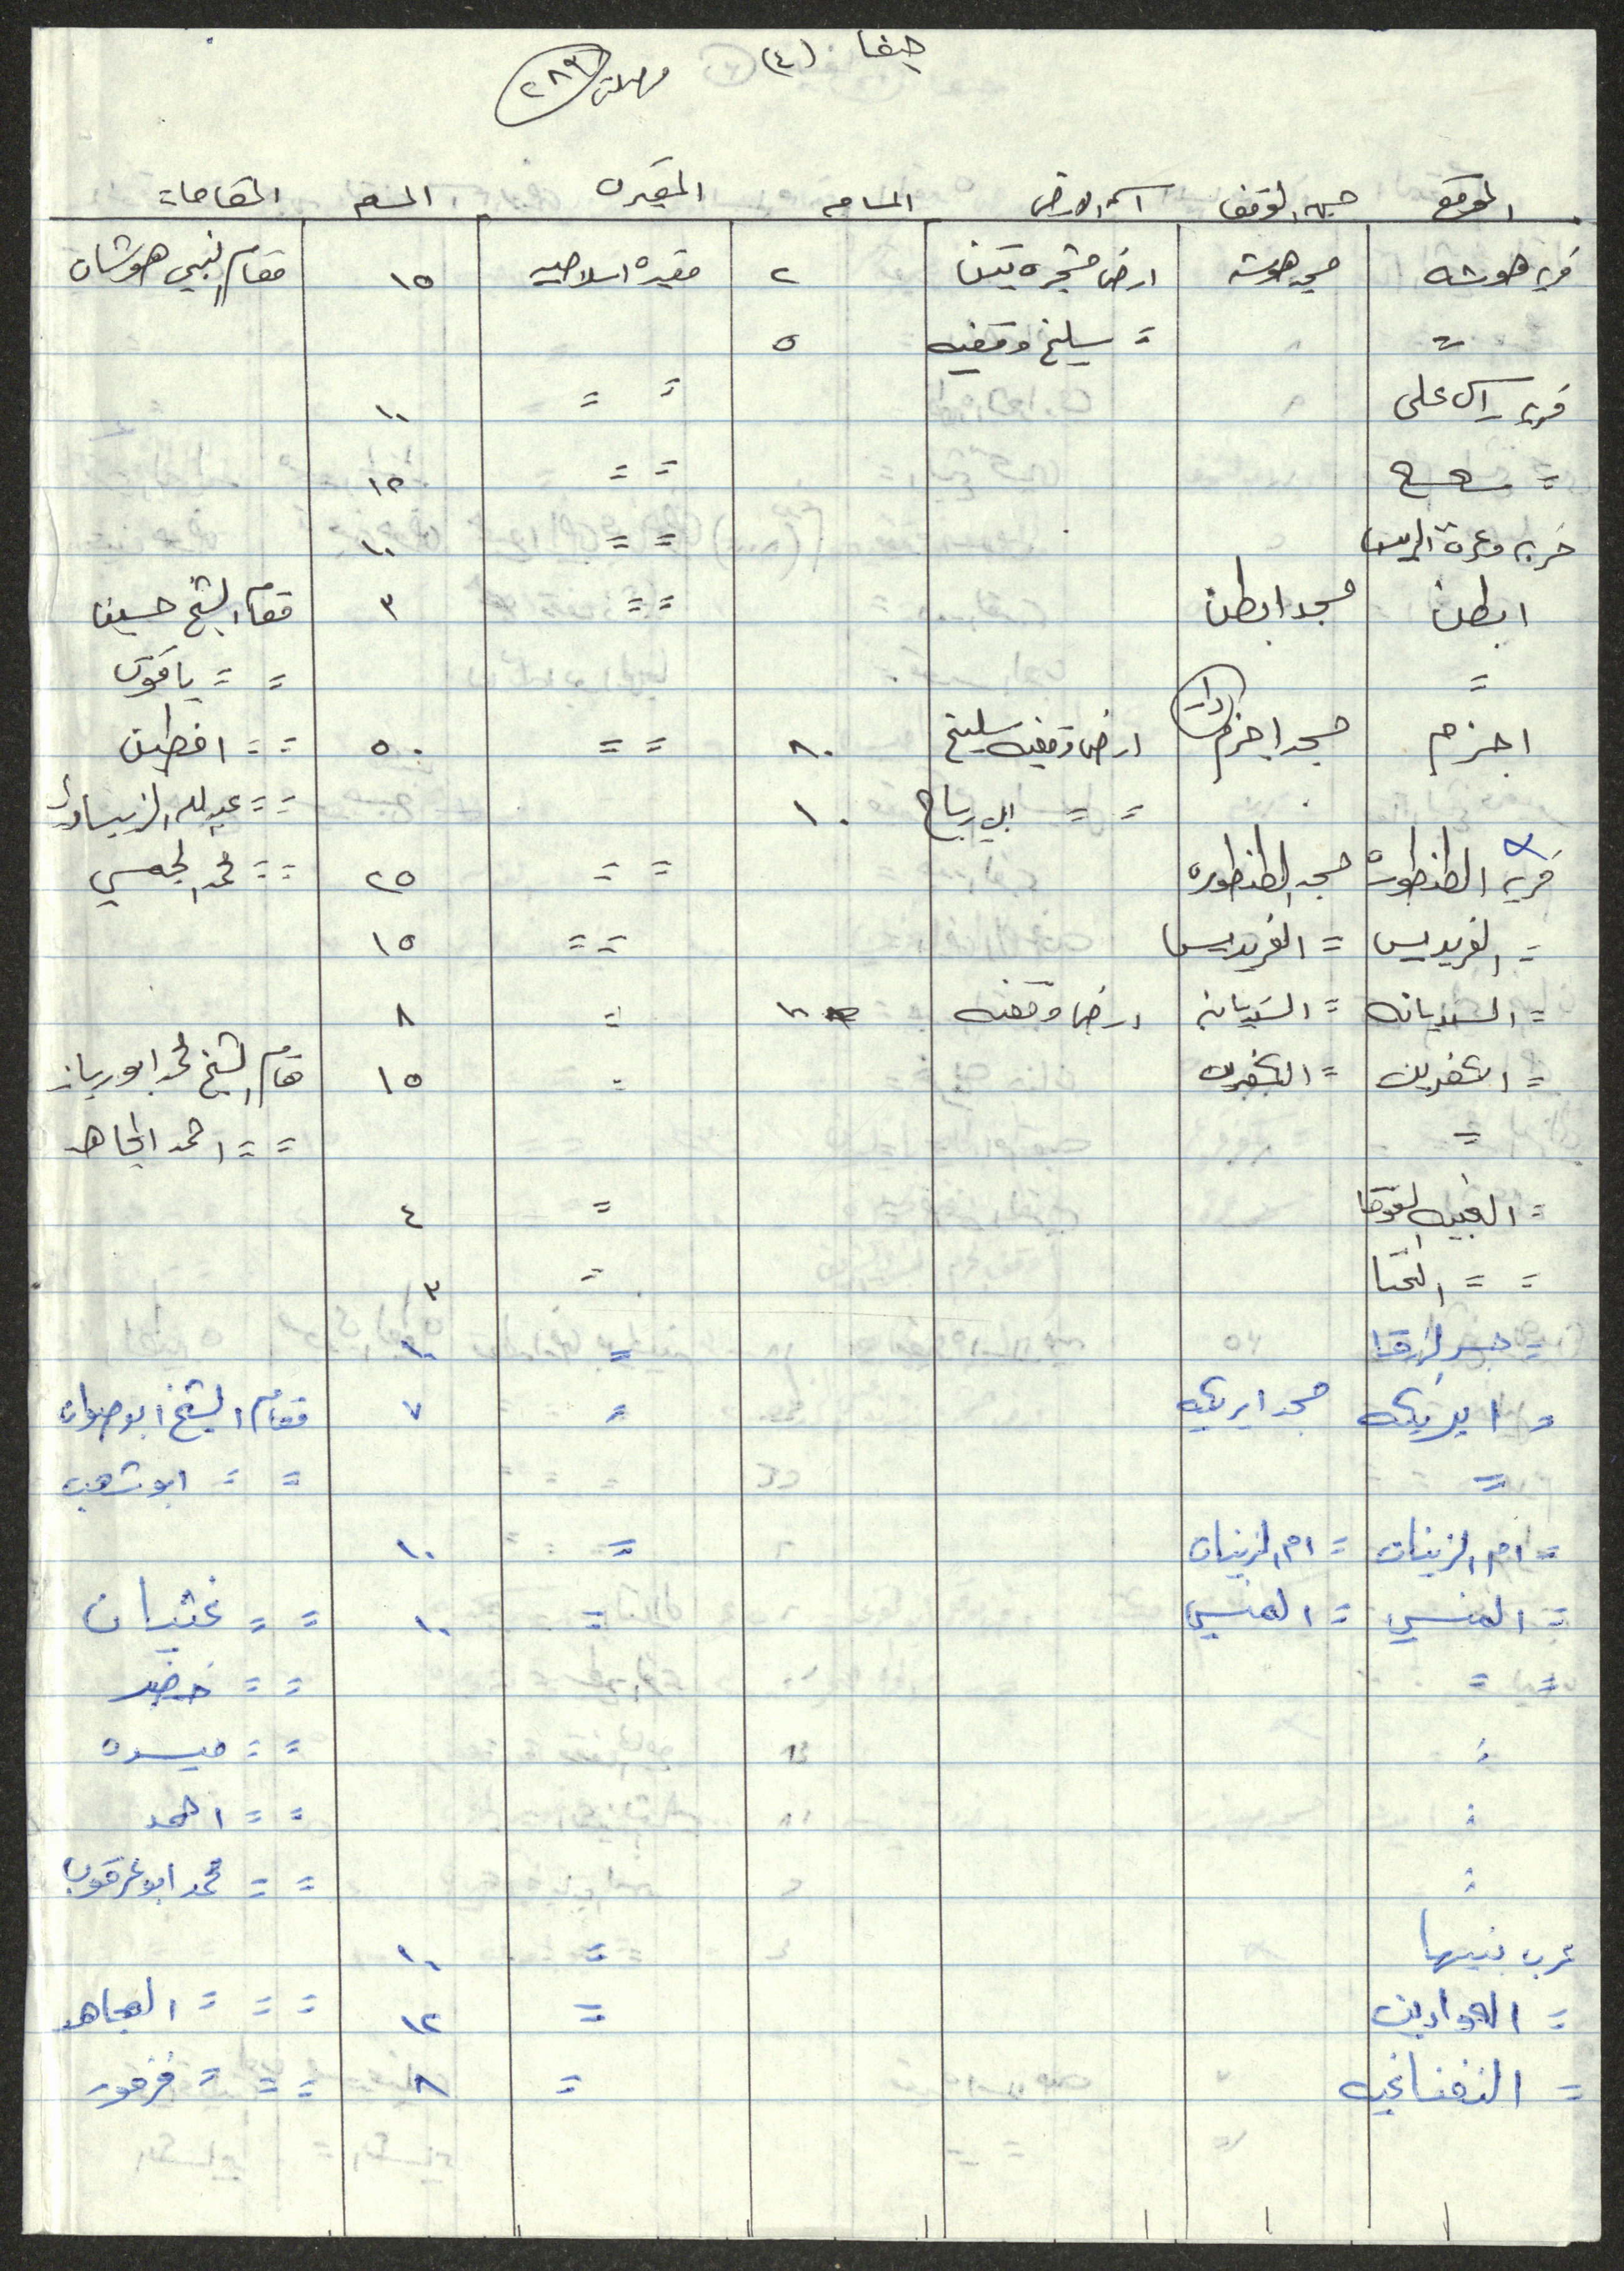 حيفا (٤)
٢٨٩
الموقع جهة الوقف اسم الارض المساحه المقبره المقامات
قرية هوشه مسجد هوشه ارض مشجره تين ٢ مقبره اسلاميه ١٥ مقام النبي هوشان
= = سليخ وقفيه ٥
قرية راس علي = = ١٠
= سعسع = = ١٥
خربة وعرة الريس = = ١٠
ابطن مسجد ابطن = = ٣ مقام الشيخ حسين
= = = ياقوت
اجزم مسجد اجزم ارض وقفيه سليخ ٨٠ = = ٥٠ = = افطين
= = ابي رباح ١٠ = = عبدالله
قرية الطنطورة مسجد الطنطوره = = ٢٥ = = محمد
= الفريديس = الفريديس = = ١٥
= السنديانه = السنديانه ارض وقفيه = ٨
= الكفرين = الكفرين = ١٥ مقام الشيخ محمد ابو
= = = احمد المجاهد
= الغبيه الفوقا = ٤
= = التحتا = ٣
= جسر الزرقا = ١٠
= ابريكه مسجد ابريكه = ٧ مقام الشيخ ابو
= = = ابو
= ام الزينات = ام الزينات = ١٠
= المنسي = المنسي = ١٠ = = غثيان
= = = = خضر
= = = ميسره
= = = احمد
= = = محمد ابو عرقوب
عرب بنيها = ١٠
= العوادين = ١٢ = = = المجاهد
= النغناغيه = ٨ = = = فرمور